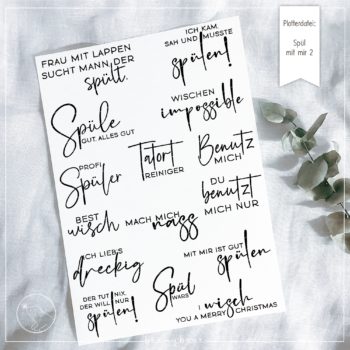 Plotterdatei:
Spül
mit mir 2
FRAU MIT LAPPEN
SUCHT MANN, DER
spült.
ICH KAM,
SAH UND MUSSTE
spülen!
WISCHEN
impossible
Spüle
GUT, ALLES GUT
PROFI
Spüler
Tatort
REINIGER
Benutz
MICH
DU
benutzt
MICH NUR
BEST
wisch
MACH MICH
nass
ICH LIEB'S
dreckig
MIT MIR IST GUT
spülen
DER TUT NIX,
DER WILL NUR
spülen!
Spül
WARS
I wisch
YOU A MERRY CHRISTMAS